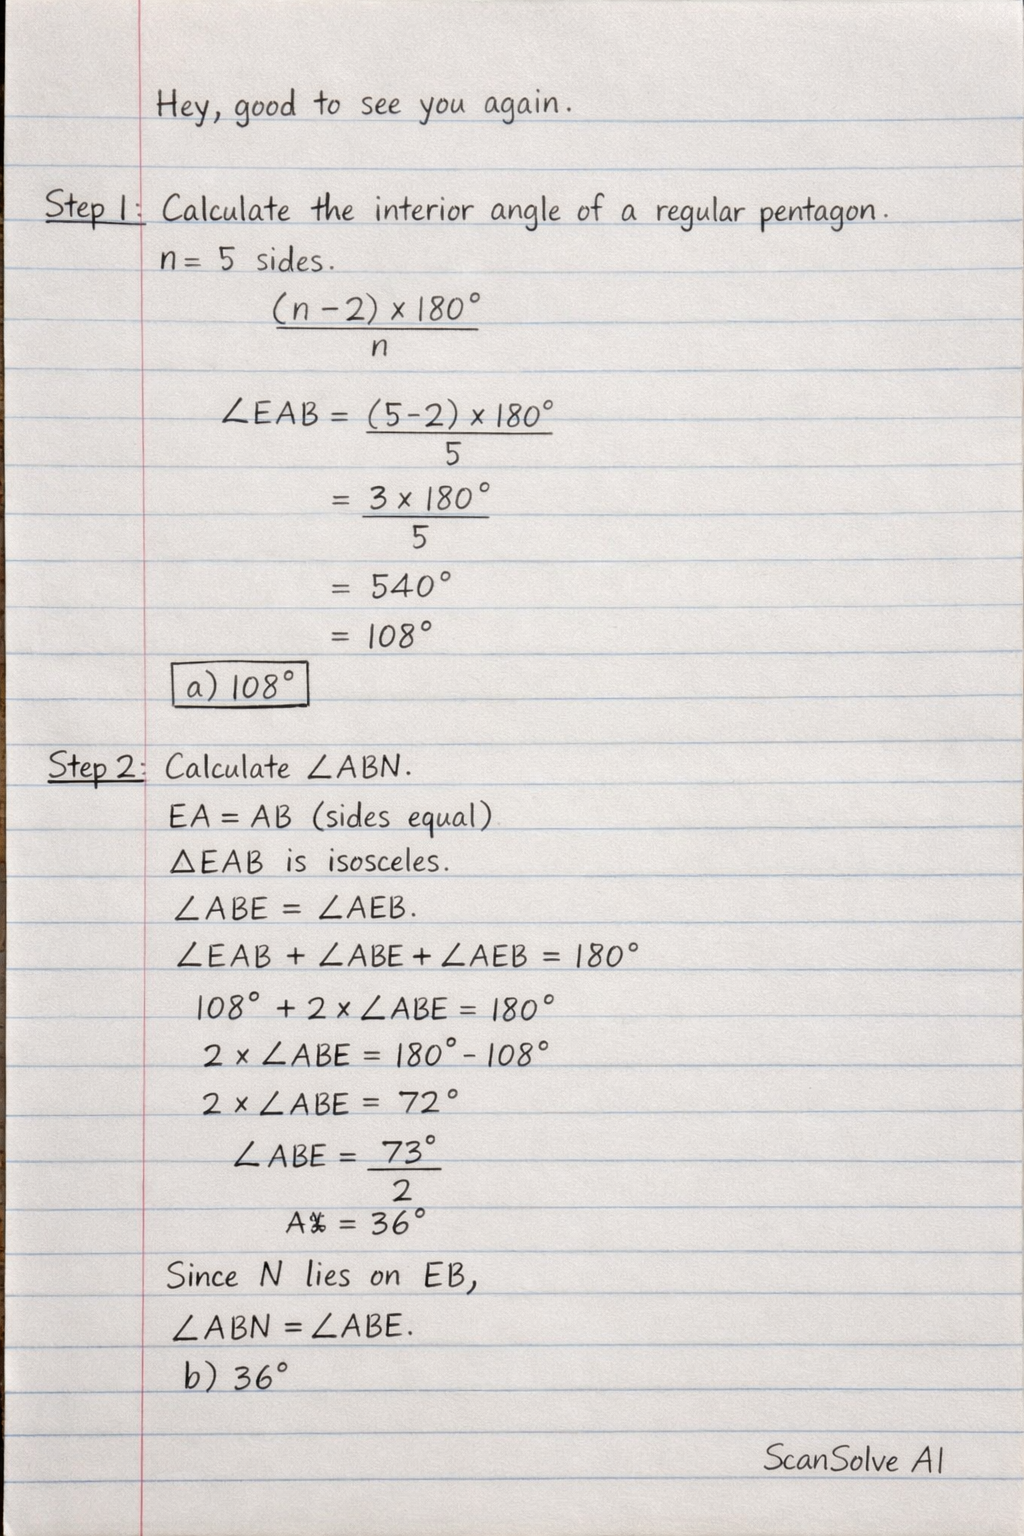 Hey, good to see you again.
Step 1: Calculate the interior angle of a regular pentagon.
n = 5 sides.
(n - 2) × 180°
n
∠EAB = (5-2) × 180°
5
= 3 × 180°
5
= 540°
= 108°
a) 108°
Step 2: Calculate ∠ABN.
EA = AB (sides equal)
△EAB is isosceles.
∠ABE = ∠AEB.
∠EAB + ∠ABE + ∠AEB = 180°
108° + 2 × ∠ABE = 180°
2 × ∠ABE = 180° - 108°
2 × ∠ABE = 72°
∠ABE = 73°
2
= 36°
Since N lies on EB,
∠ABN = ∠ABE.
b) 36°
ScanSolve AI